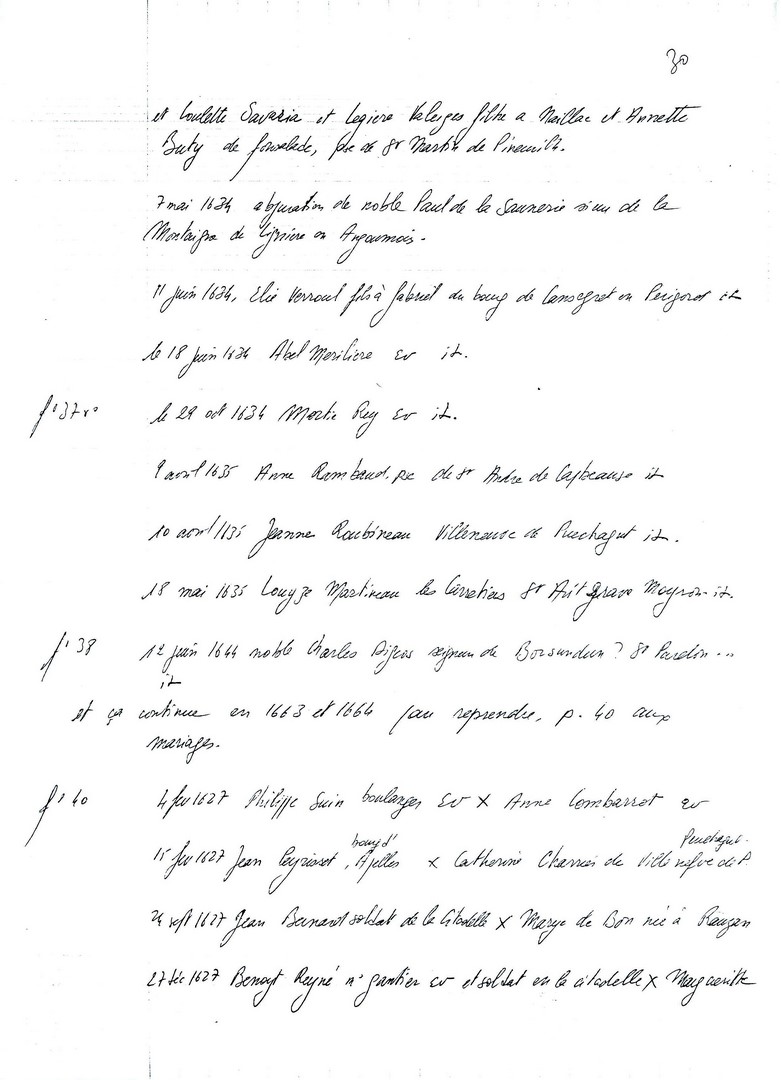 30
et Coulette Savaria et Legiere Valeyes filhe a Naillac et Annette
Buty de fonselade, psse de St Martin de Pineuilh.
7 mai 1634 abjuration de noble Paul de la Saunerie sieur de la
Montaigne de Ligniere en Angoumois.
11 juin 1634, Elie Verroul fils à Gabriel du bourg de Cansegret en Perigord it
le 18 juin 1634 Abel Merilière ev it.
f° 37 v° le 29 oct 1634 Marthe Rey ev it.
9 avril 1635 Anne Rambaud, psse de St Andre de Capbeause it
10 avril 1635 Jeanne Roubineau Villeneuve de Puechagut it.
18 mai 1635 Louyze Martineau les Carretiers St Avit Grave Moyron it.
f° 38 12 juin 1644 noble Charles Digeos seigneur de Borsundun ? St Pardon ...
it
et ça continue en 1663 et 1664 (au reprendre, p. 40 aux
mariages.
f° 40 4 fev 1627 Philippe Suin boulanger ev X Anne Combarrot ev
15 fev 1627 Jean Peyrisset, bourg d'Ajelles x Catherine Charrier de Ville nefve de P. Puechagut.
24 sept 1627 Jean Bernard soldat de la Citadelle X Marye de Bon née à Rauzan
27 déc 1627 Benoyt Reyné me gantier ev et soldat en la citadelle X Margueritte